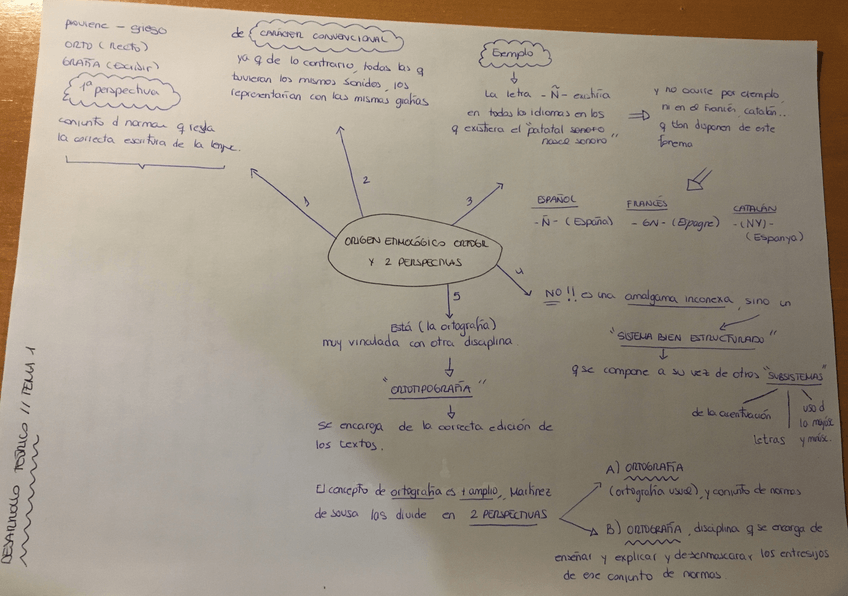 proviene - griego
ORTO (Recto)
GRAFIA (Escribir)
1ª perspectiva
conjunto d normas q regla
la correcta escritura de la lengua.
de CARÁCTER CONVENCIONAL
ya q de lo contrario, todas las q
tuvieran los mismos sonidos, los
representarían con las mismas grafías
Ejemplo
La letra -Ñ- existiría
en todos los idiomas en los
q existiera el "patatal sonoro
nasal sonoro"
y no ocurre por ejemplo
ni en el Francés, catalán...
q disponen de este
fonema
ESPAÑOL
-Ñ- (España)
FRANCÉS
-GN- (Espagne)
CATALÁN
-(NY)-
(Espanya)
1
2
3
4
5
ORIGEN ETIMOLÓGICO ORTOGR
Y 2 PERSPECTIVAS
NO!! es una amalgama inconexa, sino un
"SISTEMA BIEN ESTRUCTURADO"
q se compone a su vez de otros "SUBSISTEMAS"
de la acentuación
letras
uso d
la mayúsc.
y minúsc.
Está (la ortografía)
muy vinculada con otra disciplina
"ORTOTIPOGRAFÍA"
se encarga de la correcta edición de
los textos.
El concepto de ortografía es + amplio, Martínez
de sousa los divide en 2 PERSPECTIVAS
A) ORTOGRAFIA
(ortografía usual), y conjunto de normas
B) ORTOGRAFÍA, disciplina q se encarga de
enseñar y explicar y desenmascarar los entresijos
de ese conjunto de normas.
DESARROLLO TEÓRICO // TEMA 1